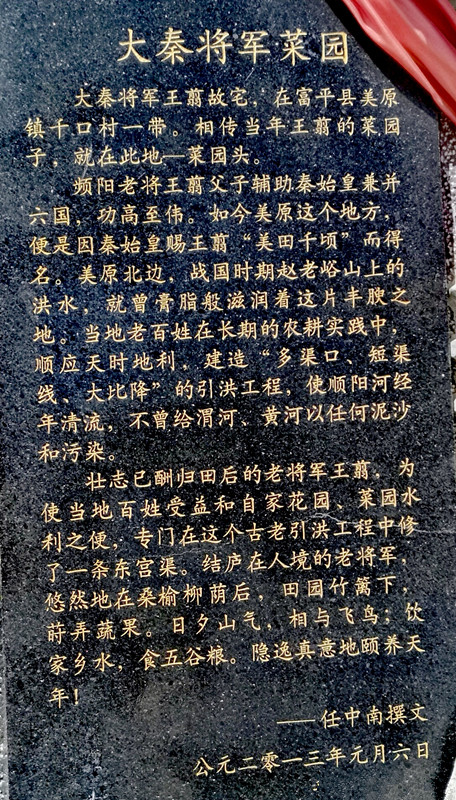 大秦将军菜园
大秦将军王翦故宅，在富平县美原
镇千口村一带。相传当年王翦的菜园
子，就在此地—菜园头。
频阳老将王翦父子辅助秦始皇兼并
六国，功高至伟。如今美原这个地方，
便是因秦始皇赐王翦“美田千顷”而得
名。美原北边，战国时期赵老峪山上的
洪水，就曾膏脂般滋润着这片丰腴之
地。当地老百姓在长期的农耕实践中，
顺应天时地利，建造“多渠口、短渠
线、大比降”的引洪工程，使顺阳河经
年清流，不曾给渭河、黄河以任何泥沙
和污染。
壮志已酬归田后的老将军王翦，为
使当地百姓受益和自家花园、菜园水
利之便，专门在这个古老引洪工程中修
了一条东宫渠。结庐在人境的老将军，
悠然地在桑榆柳荫后，田园竹篱下，
莳弄蔬果。日夕山气，相与飞鸟；饮
家乡水，食五谷粮。隐逸真意地颐养天
年！
——任中南撰文
公元二零一三年元月六日